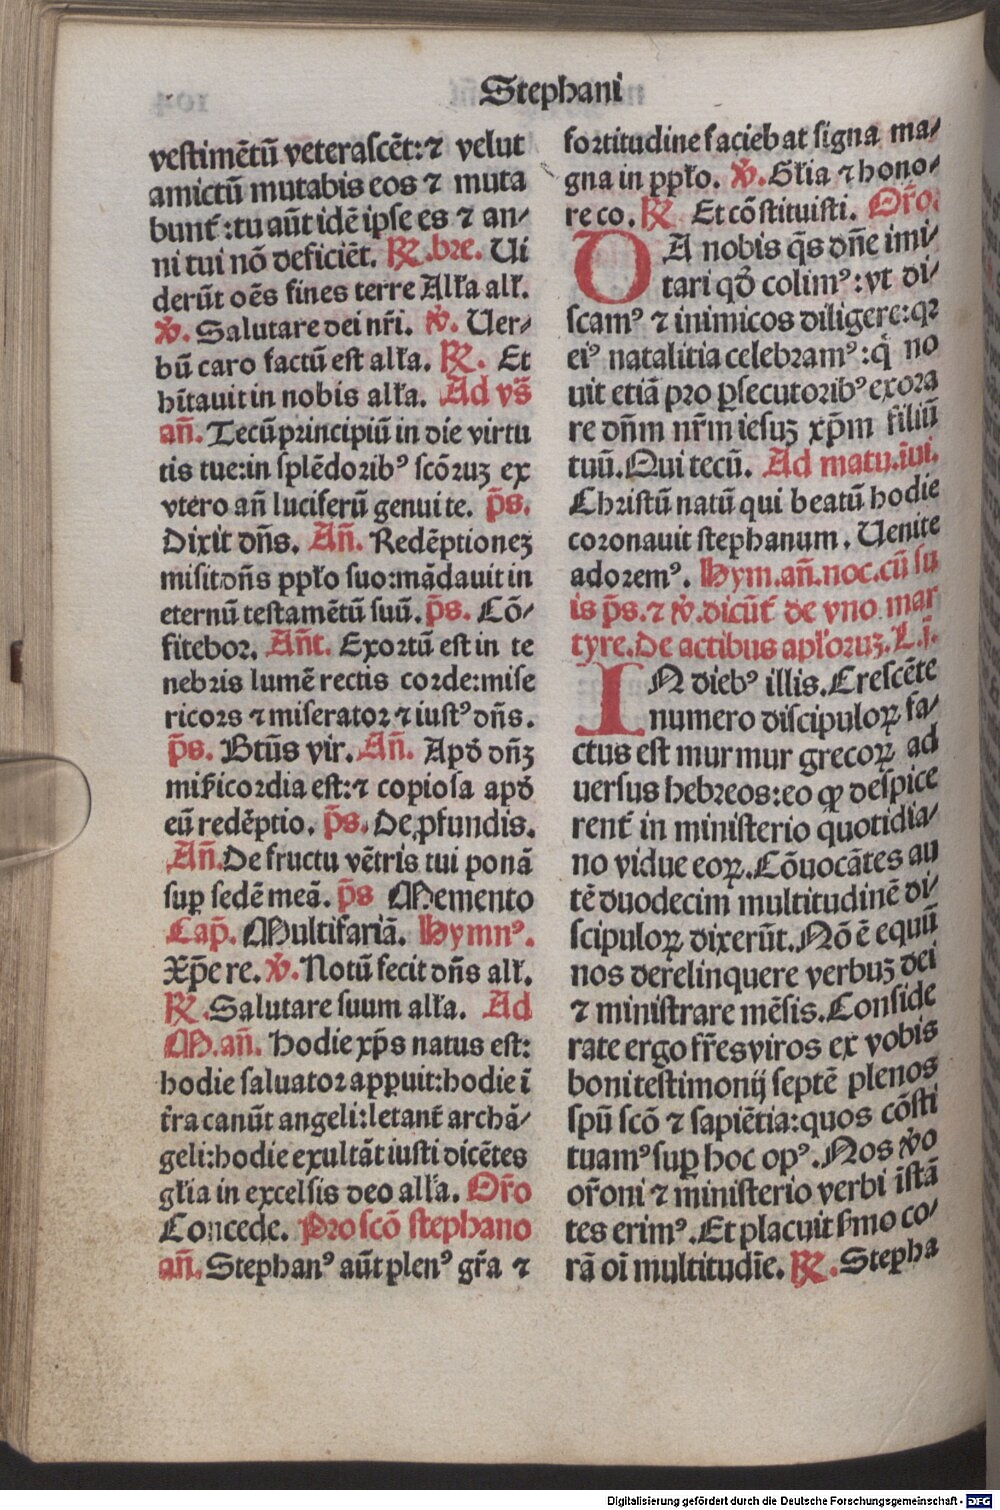 Stephani
vestimētū veterascēt: ⁊ velut
amictū mutabis eos ⁊ muta
bunt᷑: tu aūt idē ipse es ⁊ an⸗
ni tui nō deficiēt. ℟. bre. Ui
derūt oēs fines terre Alła alł.
℣. Salutare dei nr̄i. ℣. Uer⸗
bū caro factū est alła. ℟. Et
hītauit in nobis alła. Ad vs̄
an̄. Tecū principiū in die virtu
tis tue: in splēdoribꝰ scōruꝫ ex
vtero an̄ luciferū genui te. p̄s.
Dixit dn̄s. An̄. Redēptioneꝫ
misit dn̄s ppło suo: mādauit in
eternū testamētū suū. p̄s. Cō⸗
fitebor. An̄t. Exortū est in te
nebris lumē rectis corde: mise
ricors ⁊ miserator ⁊ iustꝰ dn̄s.
p̄s. Btūs vir. An̄. Apd̄ dn̄ꝫ
mīẜicordia est: ⁊ copiosa apd̄
eū redēptio. p̄s. De ꝓfundis.
An̄. De fructu vētris tui ponā
suꝑ sedē meā. p̄s Memento
Cap̄. Multifariā. Hymnꝰ.
Xp̄e re. ℣. Notū fecit dn̄s alł.
℟. Salutare suum alła. Ad
M. an̄. Hodie xp̄s natus est:
hodie saluator appuit: hodie ī
t̄ra canūt angeli: letant᷑ archā⸗
geli: hodie exultāt iusti dicētes
głia in excelsis deo alła. Or̄o
Concede. Pro scō stephano
an̄. Stephanꝰ aūt plenꝰ gr̄a ⁊
fortitudine faciebat signa ma⸗
gna in ppło. ℣. Głia ⁊ hono⸗
re co. ℟. Et cōstituisti. Or̄o.
DA nobis q̄s dn̄e imi⸗
tari qd̄ colimꝰ: vt di⸗
scamꝰ ⁊ inimicos diligere: qꝛ
eiꝰ natalitia celebramꝰ: q̄ no
uit etiā pro ꝑsecutoribꝰ exora
re dn̄m nr̄m iesuꝫ xp̄m filiū
tuū. Qui tecū. Ad matu. īui.
Christū natū qui beatū hodie
coronauit stephanum. Uenite
adoremꝰ. Hym. an̄. noc. cū su
is p̄s. ⁊ ℣. dicūt᷑ de vno mar
tyre. De actibus apłoruꝫ. L. j.
IN diebꝰ illis. Crescēte
numero discipuloꝝ fa⸗
ctus est murmur grecoꝝ ad
uersus hebreos: eo ꝙ despice
rent᷑ in ministerio quotidia⸗
no vidue eoꝝ. Cōuocātes au
tē duodecim multitudinē di⸗
scipuloꝝ dixerūt. Nō ē equū
nos derelinquere verbuꝫ dei
⁊ ministrare mēsis. Conside
rate ergo fr̄es viros ex vobis
boni testimonij septē plenos
spū scō ⁊ sapiētia: quos cōsti
tuamꝰ suꝑ hoc opꝰ. Nos v̄o
or̄oni ⁊ ministerio verbi īstā
tes erimꝰ. Et placuit ẜmo co⸗
rā oī multitudīe. ℟. Stepha
Digitalisierung gefördert durch die Deutsche Forschungsgemeinschaft - DFG